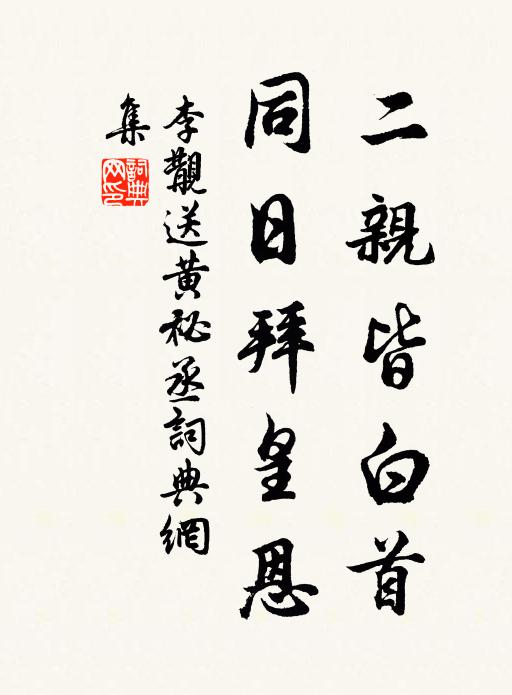 二親皆白首
同日拜皇恩
李覯送黃祕丞詞典網
集
詞典
网印